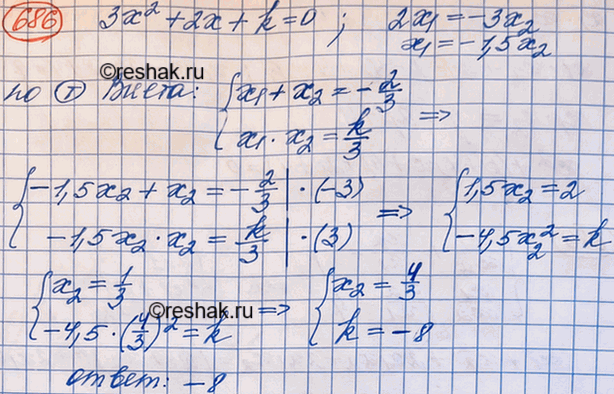 686 3x² + 2x + k = 0 ; 2x₁ = -3x₂
x₁ = -1,5x₂
©reshak.ru
по Т Виета: { x₁ + x₂ = -2/3
x₁ · x₂ = k/3 ⇒
{ -1,5x₂ + x₂ = -2/3 | · (-3) ⇒ { 1,5x₂ = 2
-1,5x₂ · x₂ = k/3 | · (3) -4,5x₂² = k
{ x₂ = 1/3 ⇒ { x₂ = 4/3
©reshak.ru
-4,5 · (4/3)² = k k = -8
ответ: -8